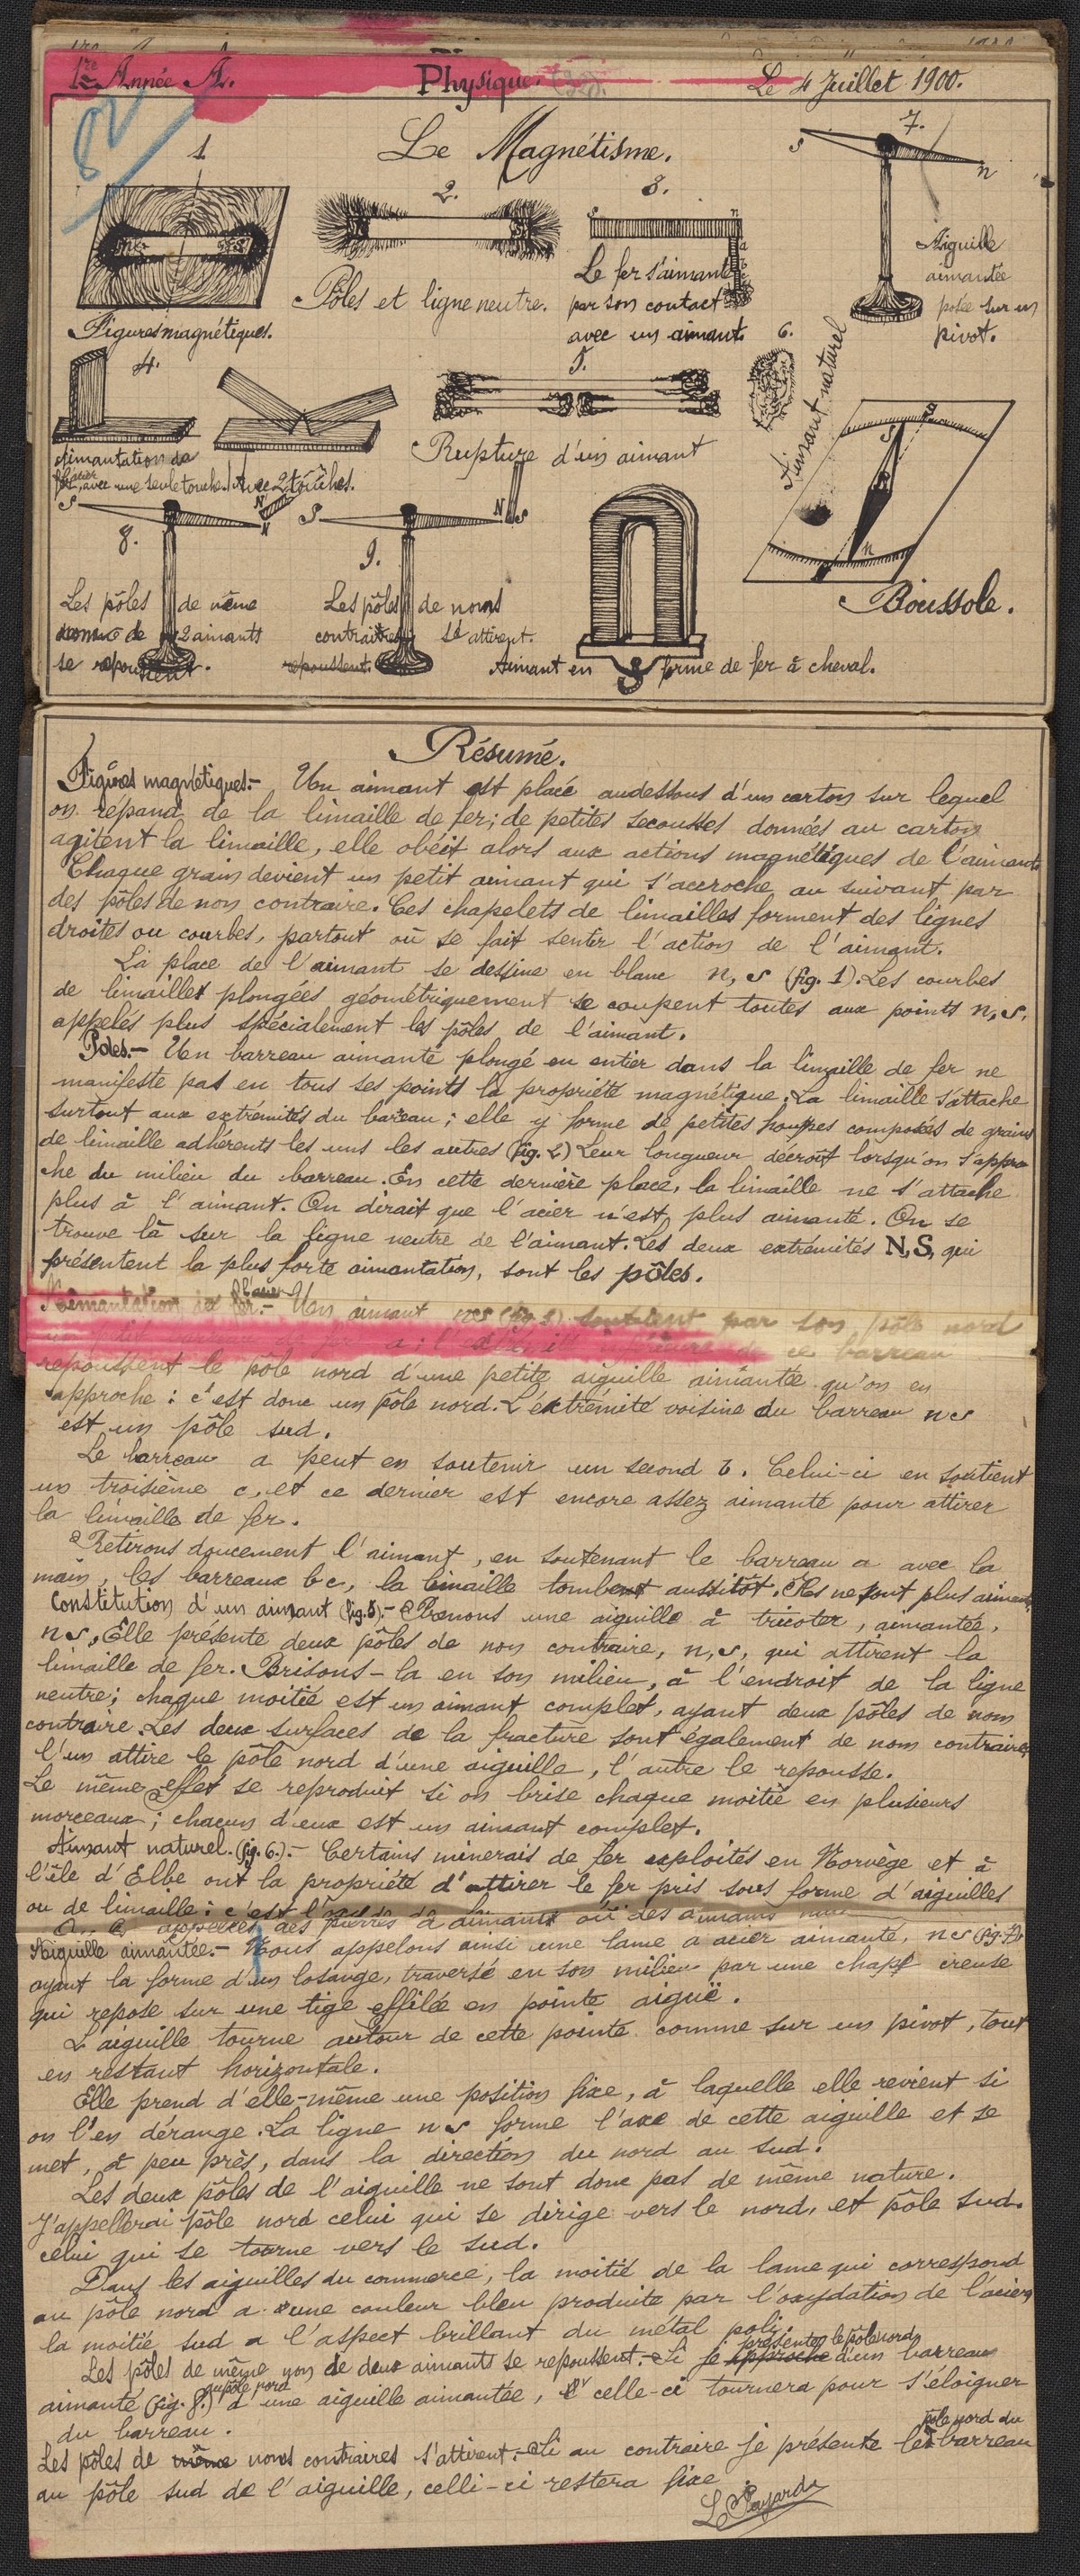 1re Année A.
Physique.
Le 4 Juillet 1900.
82
Le Magnétisme.
1
Figures magnétiques.
2.
Pôles et ligne neutre.
3.
s n
a
b
Le fer s'aimante
par son contact
avec un aimant.
7.
s n
Aiguille
aimantée
posée sur un
pivot.
4.
Aimantation de
l'acier
avec une seule touche. Avec 2 touches.
5.
Rupture d'un aimant
6.
Aimant naturel
S
S
n
Boussole.
8.
S N
N
Les pôles de même
nom de 2 aimants
se repoussent.
9.
S N S
Les pôles de noms
contraires s'attirent.
repoussent.
Aimant en forme de fer à cheval.
Résumé.
Figures magnétiques.- Un aimant est placé audessous d'un carton sur lequel
on répand de la limaille de fer; de petites secousses données au carton
agitent la limaille, elle obéit alors aux actions magnétiques de l'aimant
Chaque grain devient un petit aimant qui s'accroche au suivant par
des pôles de non contraire. Ces chapelets de limailles forment des lignes
droites ou courbes, partout où se fait sentir l'action de l'aimant.
La place de l'aimant se dessine en blanc n, s (fig. 1). Les courbes
de limailles plongées géométriquement se coupent toutes aux points n, s,
appelés plus spécialement les pôles de l'aimant.
Poles.- Un barreau aimanté plongé en entier dans la limaille de fer ne
manifeste pas en tous ses points la propriété magnétique. La limaille s'attache
surtout aux extrémités du bareau; elle y forme de petites houppes composés de grains
de limaille adhérents les uns les autres (fig. 2) Leur longueur décroît lorsqu'on s'appro
che du milieu du barreau. En cette dernière place, la limaille ne s'attache
plus à l'aimant. On dirait que l'acier n'est plus aimanté. On se
trouve là sur la ligne neutre de l'aimant. Les deux extrémités N, S, qui
présentent la plus forte aimantation, sont les pôles.
l'acier
Aimantation du fer.- Un aimant ns (fig. 3) soutient par son pôle nord
a; l' de ce barreau
repoussent le pôle nord d'une petite aiguille aimantée qu'on en
approche: c'est donc un pôle nord. L'extrémité voisine du barreau ns
est un pôle sud.
Le barreau a peut en soutenir un second b. Celui-ci en soutient
un troisième c, et ce dernier est encore assez aimanté pour attirer
la limaille de fer.
Retirons doucement l'aimant, en soutenant le barreau a avec la
main, les barreaux bc, la limaille tombent aussitôt. Ils ne sont plus aimantés
Constitution d'un aimant (fig. 5).- Prenons une aiguille à tricoter, aimantée,
ns, Elle présente deux pôles de non contraire, n, s, qui attirent la
limaille de fer. Brisons-la en son milieu, à l'endroit de la ligne
neutre; chaque moitié est un aimant complet, ayant deux pôles de nom
contraire. Les deux surfaces de la fracture sont également de nom contraire,
l'un attire le pôle nord d'une aiguille, l'autre le repousse.
Le même effet se reproduit si on brise chaque moitié en plusieurs
morceaux; chacun d'eux est un aimant complet.
Aimant naturel. (fig. 6.).- Certains minerais de fer exploités en Norvège et à
l'île d'Elbe ont la propriété d'attirer le fer pris sous forme d'aiguilles
ou de limaille: c'est
appelées des pierres d'aimants où des aimants
Aiguille aimantée.- Nous appelons ainsi une lame a acier aimanté, ns (fig. 7),
ayant la forme d'un losange, traversé en son milieu par une chape creuse
qui repose sur une tige effilée en pointe aiguë.
L'aiguille tourne autour de cette pointe comme sur un pivot, tout
en restant horizontale.
Elle prend d'elle-même une position fixe, à laquelle elle revient si
on l'en dérange. La ligne ns forme l'axe de cette aiguille et se
met, à peu près, dans la direction du nord au sud.
Les deux pôles de l'aiguille ne sont donc pas de même nature.
J'appellerai pôle nord celui qui se dirige vers le nord, et pôle sud.
celui qui se tourne vers le sud.
Dans les aiguilles du commerce, la moitié de la lame qui correspond
au pôle nord a une couleur bleu produite par l'oxydation de l'acier,
la moitié sud a l'aspect brillant du métal poli.
présente le pôle nord
Les pôles de même non de deux aimants se repoussent.- Si je approche d'un barreau
au pôle nord
aimanté (fig. 8.) d'une aiguille aimantée, celle-ci tournera pour s'éloigner
du barreau.
pôle nord du
Les pôles de même noms contraires s'attirent.- Si au contraire je présente le barreau
au pôle sud de l'aiguille, celli-ci restera fixe.